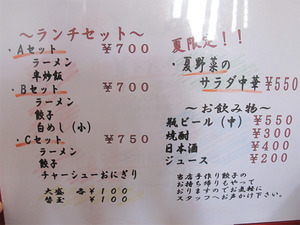 ～ランチセット～
・Aセット ￥700
ラーメン
半炒飯
・Bセット ￥700
ラーメン
餃子
白めし（小）
・Cセット ￥750
ラーメン
餃子
チャーシューおにぎり
大盛 各￥100
替玉 ￥100
夏限定！！
・夏野菜の
サラダ中華 ￥550
～お飲み物～
瓶ビール（中）￥550
焼酎 ￥300
日本酒 ￥400
ジュース ￥200
当店手作り餃子の
お持ち帰りもやって
おりますのでお気軽に
スタッフへお声かけ下さい。